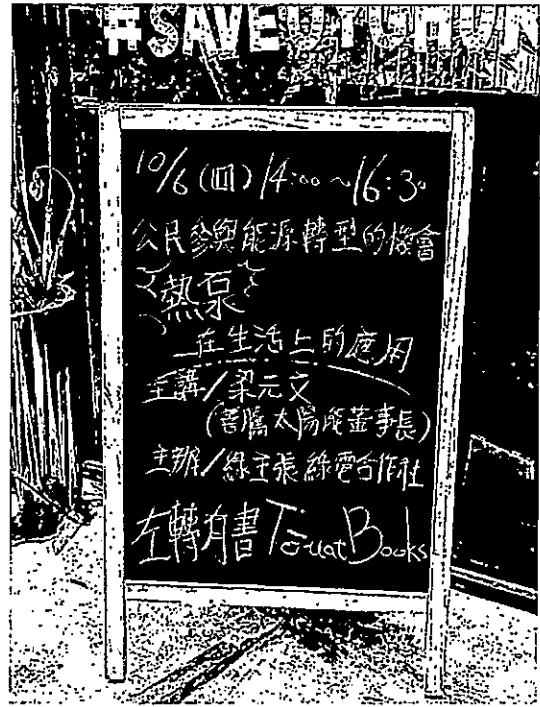 #SAVEUYGHUR
10/6 (四) 14:00~16:30
公民參與能源轉型的機會
熱泵
在生活上的應用
主講/梁元文
(善騰太陽能董事長)
主辦/綠主張綠電合作社
左轉有書 Touat Books